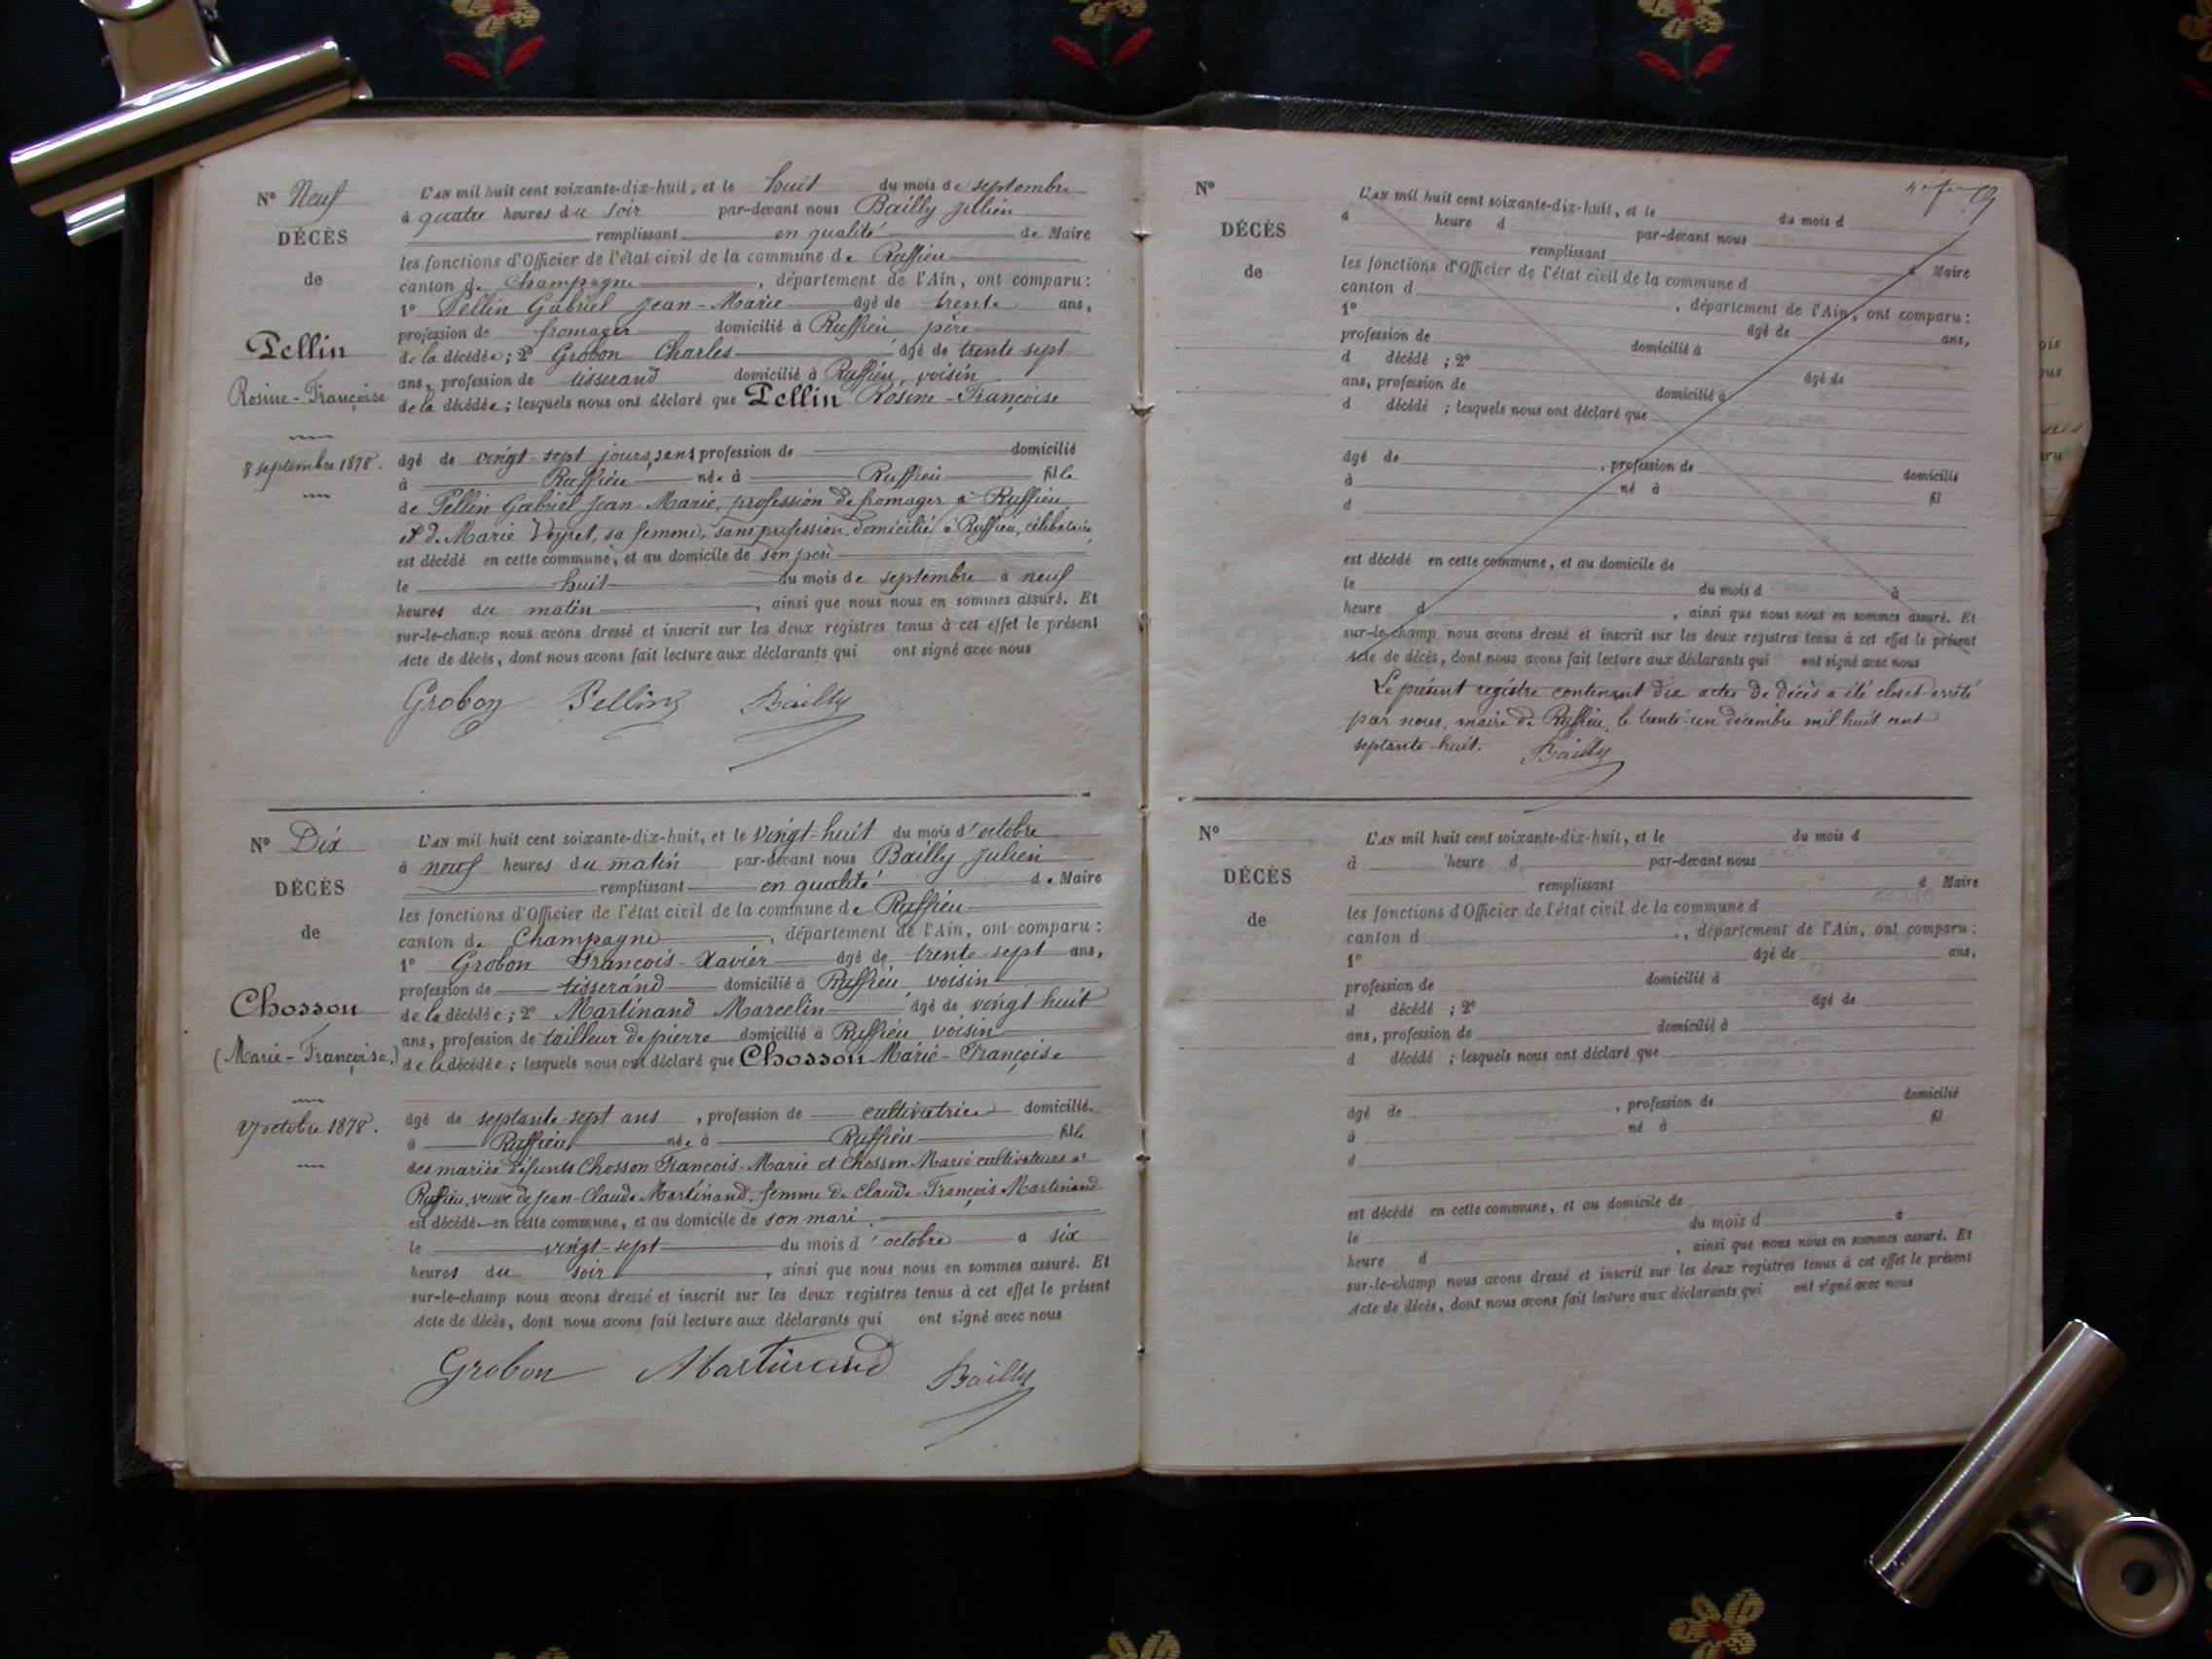 N° Neuf
DÉCÈS
de
Pellin
Rosine-Françoise
8 septembre 1878.
L'AN mil huit cent soixante-dix-huit, et le huit du mois de septembre
à quatre heures du soir par-devant nous Bailly Julien
remplissant en qualité de Maire
les fonctions d'Officier de l'état civil de la commune de Ruffieu
canton de Champagne, département de l'Ain, ont comparu:
1° Pellin Gabriel Jean-Marie âgé de trente ans,
profession de fromager domicilié à Ruffieu père
de la décédée; 2° Grobon Charles âgé de trente sept
ans, profession de tisserand domicilié à Ruffieu, voisin
de la décédée; lesquels nous ont déclaré que Pellin Rosine-Françoise
âgé de vingt-sept jours, sans profession de domicilié
à Ruffieu née à Ruffieu fille
de Pellin Gabriel Jean-Marie, profession de fromager à Ruffieu
et de Marie Veyret, sa femme, sans profession, domicilié à Ruffieu, célibataire,
est décédé en cette commune, et au domicile de son père
le huit du mois de septembre à neuf
heures du matin, ainsi que nous nous en sommes assuré. Et
sur-le-champ nous avons dressé et inscrit sur les deux registres tenus à cet effet le présent
Acte de décès, dont nous avons fait lecture aux déclarants qui ont signé avec nous
Grobon Pellin Bailly
N° Dix
DÉCÈS
de
Chosson
(Marie-Françoise.)
27 octobre 1878.
L'AN mil huit cent soixante-dix-huit, et le vingt-huit du mois d'octobre
à neuf heures du matin par-devant nous Bailly Julien
remplissant en qualité de Maire
les fonctions d'Officier de l'état civil de la commune de Ruffieu
canton de Champagne, département de l'Ain, ont comparu:
1° Grobon François-Xavier âgé de trente sept ans,
profession de tisserand domicilié à Ruffieu voisin
de la décédée; 2° Martinand Marcelin âgé de vingt huit
ans, profession de tailleur de pierre domicilié à Ruffieu voisin
de la décédée; lesquels nous ont déclaré que Chosson Marie-Françoise
âgé de septante-sept ans, profession de cultivatrice domiciliée
à Ruffieu née à Ruffieu fille
des mariés défunts Chosson François-Marie et Chosson Marie cultivateurs à
Ruffieu, veuve de Jean-Claude Martinand, femme de Claude-François Martinand
est décédée en cette commune, et au domicile de son mari,
le vingt-sept du mois d'octobre à six
heures du soir, ainsi que nous nous en sommes assuré. Et
sur-le-champ nous avons dressé et inscrit sur les deux registres tenus à cet effet le présent
Acte de décès, dont nous avons fait lecture aux déclarants qui ont signé avec nous
Grobon Martinand Bailly
N°
DÉCÈS
de
L'AN mil huit cent soixante-dix-huit, et le du mois d
à heure d par-devant nous
remplissant d Maire
les fonctions d'Officier de l'état civil de la commune d
canton d, département de l'Ain, ont comparu:
1° âgé de ans,
profession de domicilié à
d décédé ; 2° âgé de
ans, profession de domicilié à
d décédé ; lesquels nous ont déclaré que
âgé de, profession de domicilié
à né à fil
d
est décédé en cette commune, et au domicile de
le du mois d à
heure d, ainsi que nous nous en sommes assuré. Et
sur-le-champ nous avons dressé et inscrit sur les deux registres tenus à cet effet le présent
Acte de décès, dont nous avons fait lecture aux déclarants qui ont signé avec nous
Le présent registre contenant dix actes de décès a été clos et arrêté
par nous, maire de Ruffieu, le trente-un décembre mil huit cent
septante-huit. Bailly
N°
DÉCÈS
de
L'AN mil huit cent soixante-dix-huit, et le du mois d
à heure d par-devant nous
remplissant d Maire
les fonctions d'Officier de l'état civil de la commune d
canton d, département de l'Ain, ont comparu:
1° âgé de ans,
profession de domicilié à
d décédé ; 2° âgé de
ans, profession de domicilié à
d décédé ; lesquels nous ont déclaré que
âgé de, profession de domicilié
à né à fil
d
est décédé en cette commune, et au domicile de
le du mois d à
heure d, ainsi que nous nous en sommes assuré. Et
sur-le-champ nous avons dressé et inscrit sur les deux registres tenus à cet effet le présent
Acte de décès, dont nous avons fait lecture aux déclarants qui ont signé avec nous